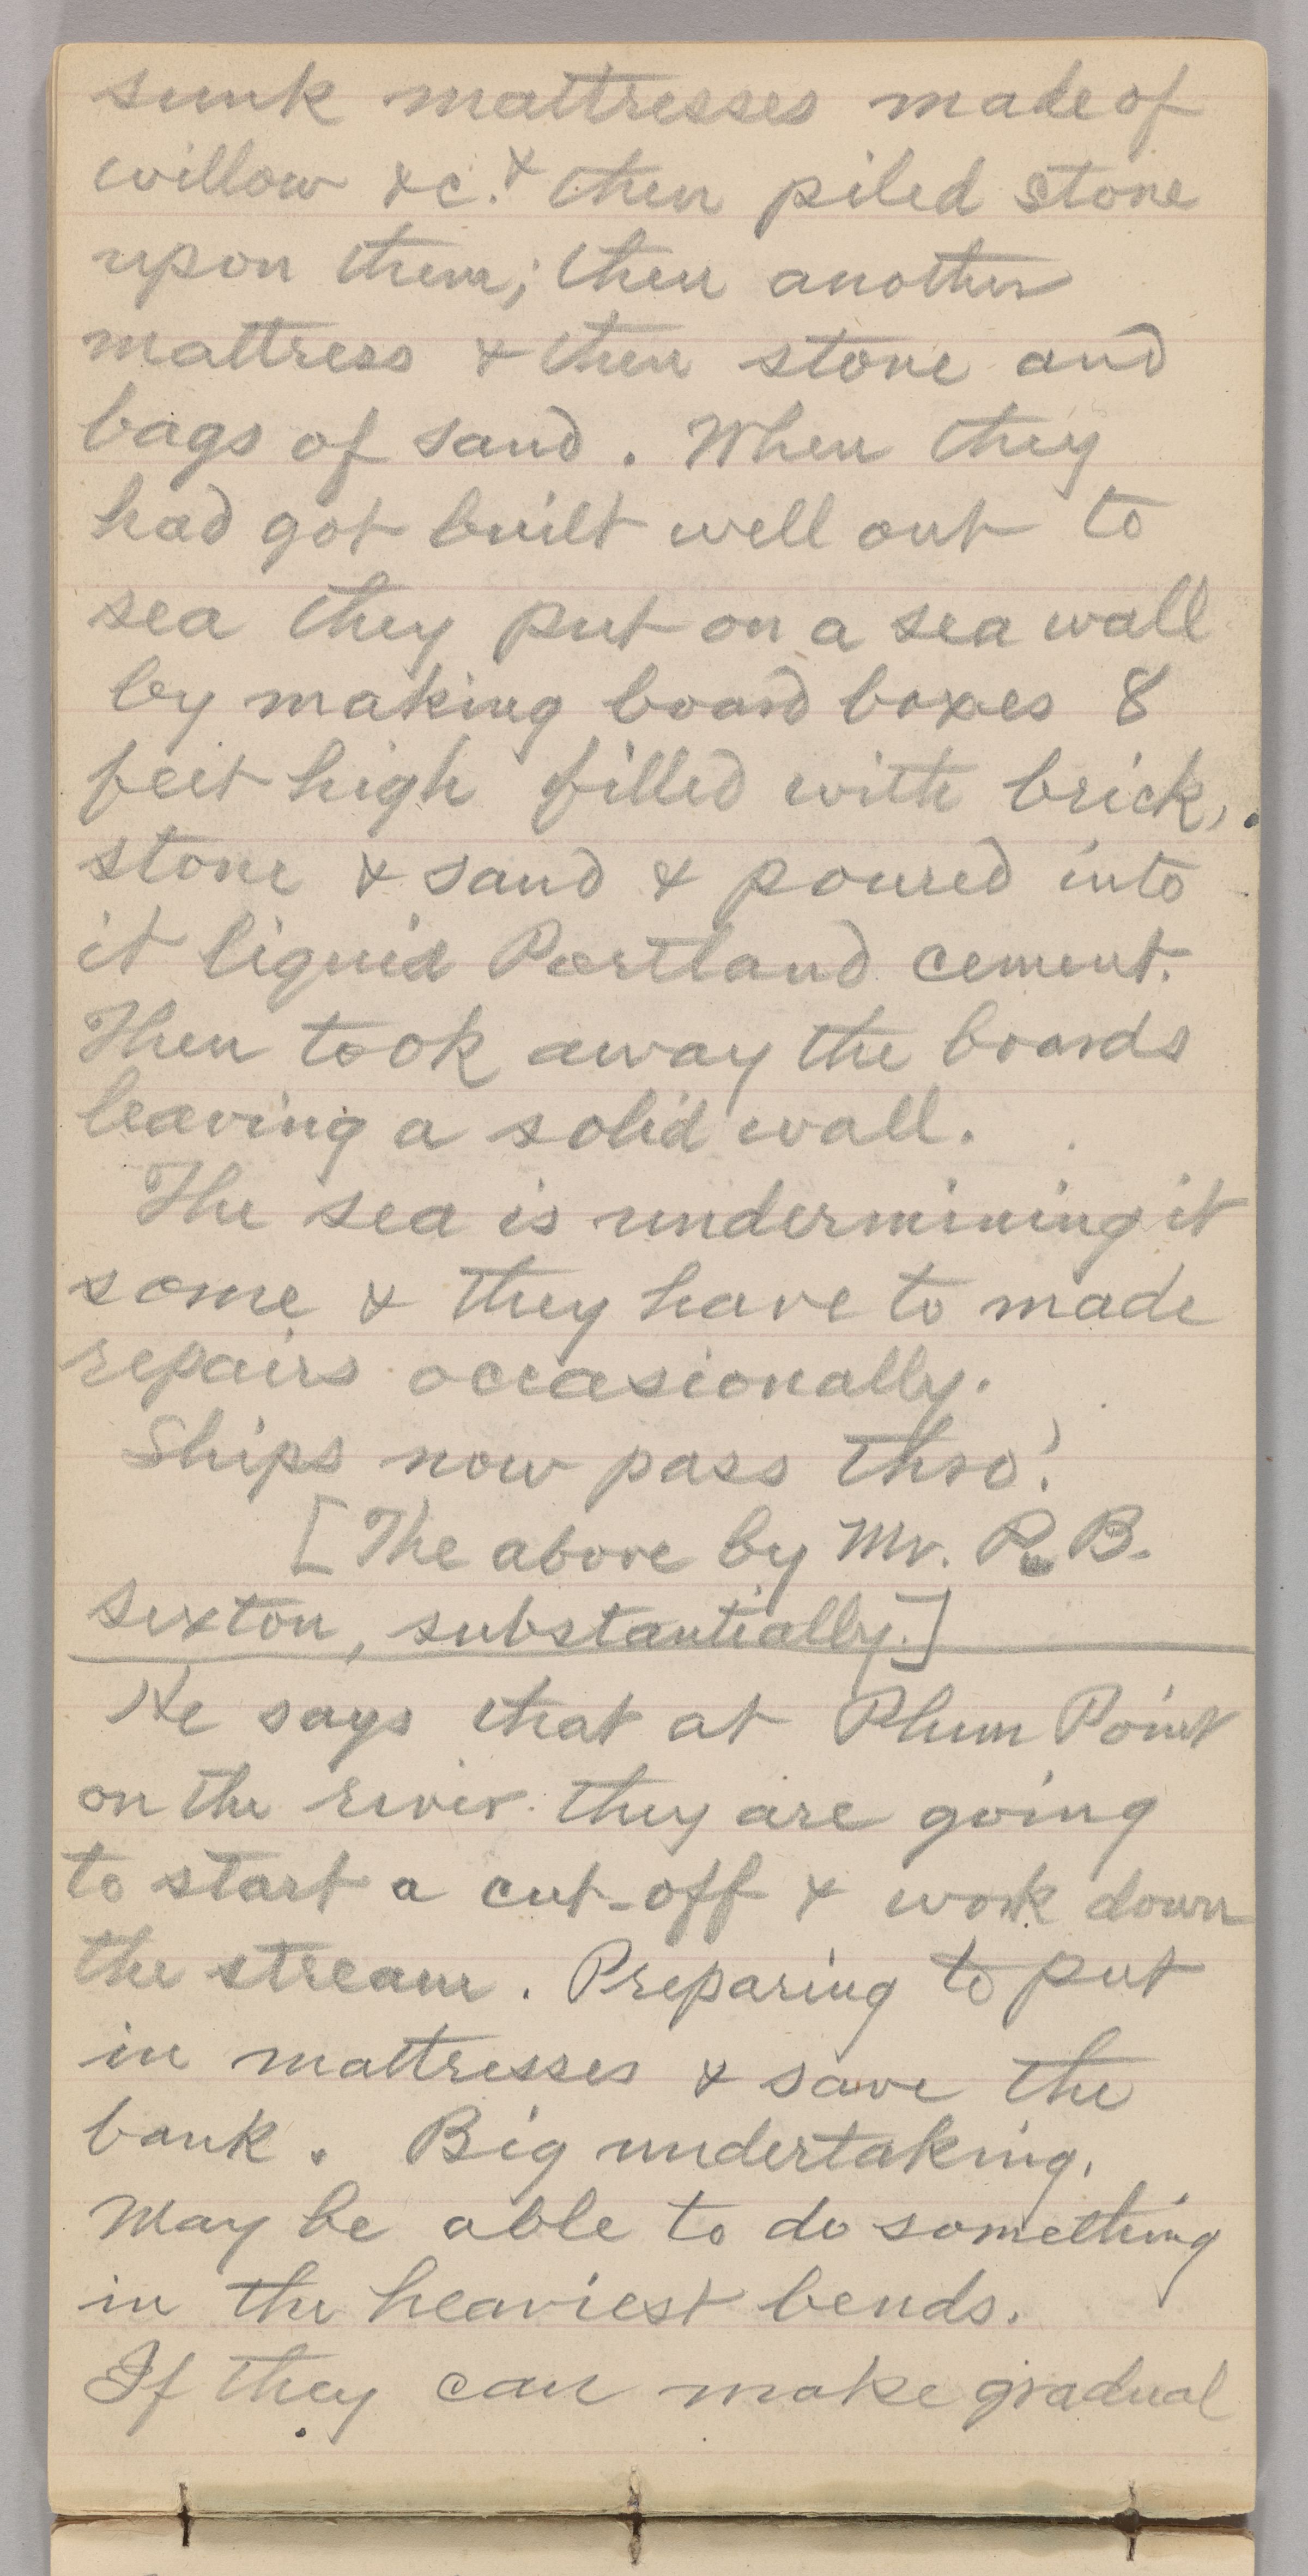 sunk mattresses made of
willow &c. & then piled stone
upon them; then another
mattress & then stone and
bags of sand. When they
had got built well out to
sea they put on a sea wall
by making board boxes 8
feet high filled with brick,
stone & sand & poured into
it liquid Portland cement.
Then took away the boards
leaving a solid wall.
The sea is undermining it
some & they have to made
repairs occasionally.
Ships now pass thro'.
[The above by Mr. R. B.
Sexton, substantially.]
He says that at Plum Point
on the river they are going
to start a cut-off & work down
the stream. Preparing to put
in mattresses & save the
bank. Big undertaking.
May be able to do something
in the heaviest bends.
If they can make gradual